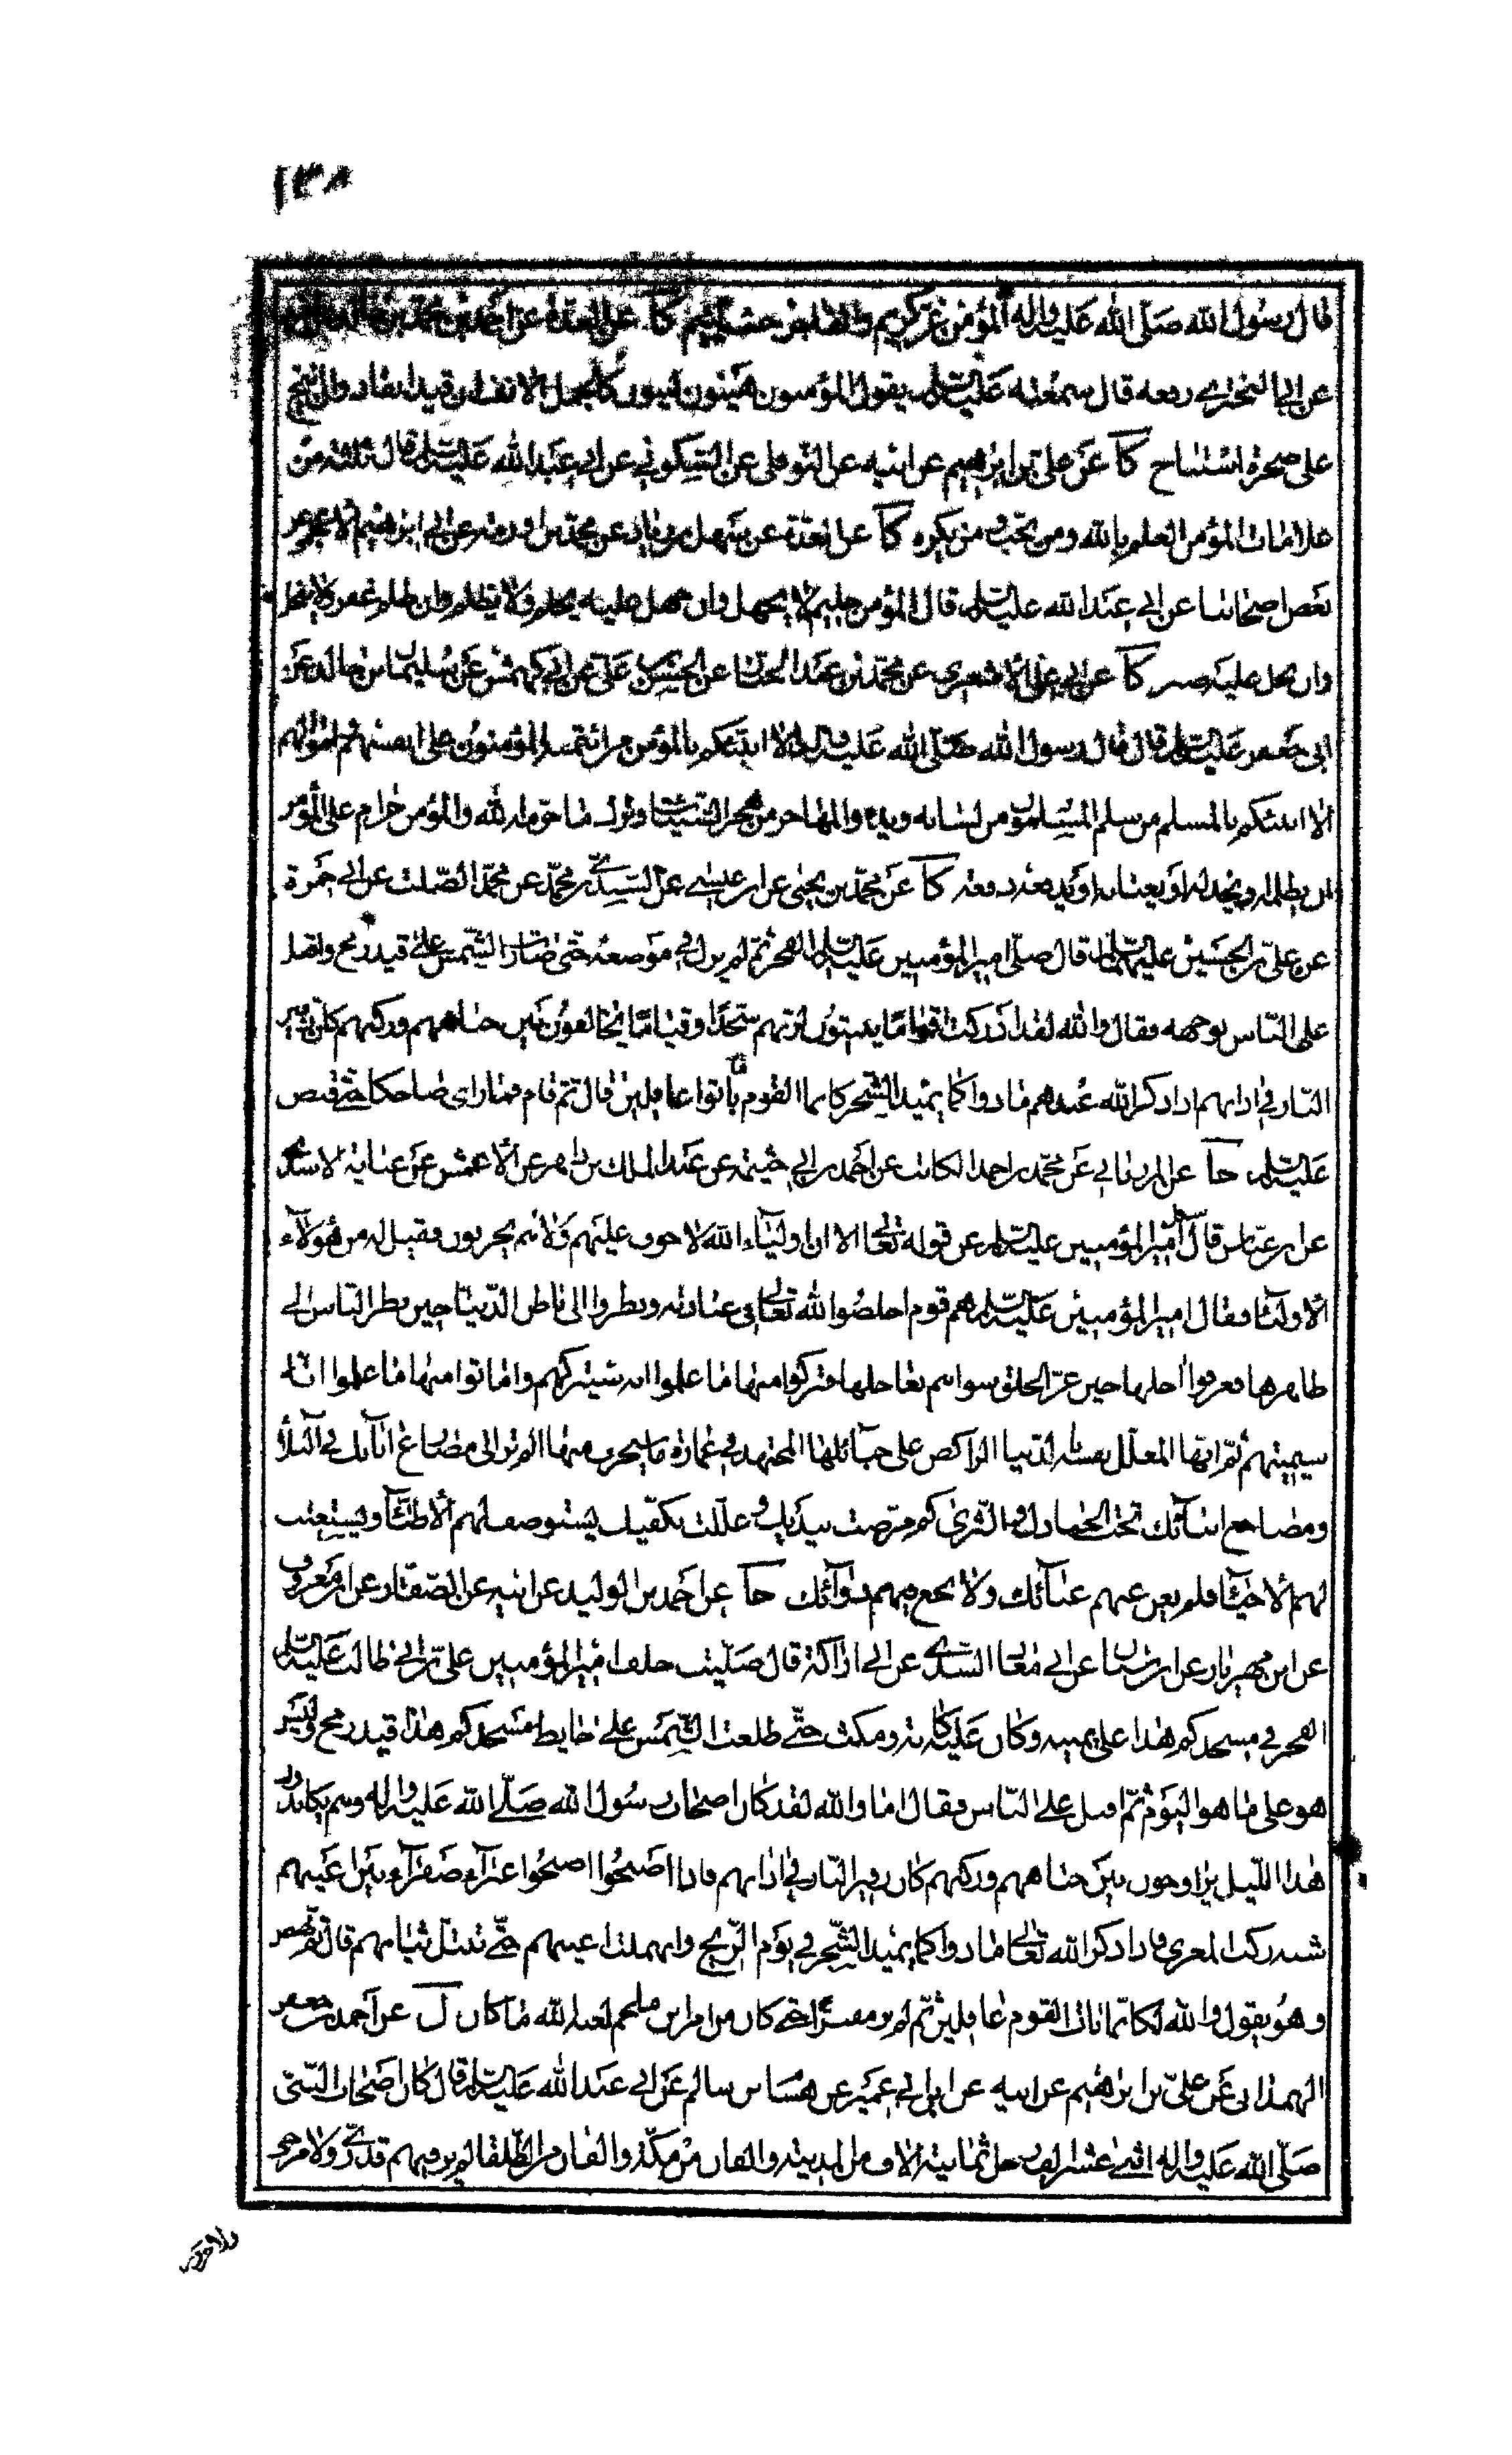 ١٣٨
قال رسول الله صلى الله عليه واله المؤمن غر كريم والفاجر خب لئيم كا عن العدة عن احمد بن محمد بن خالد
عن ابي البختري رفعه قال سمعته عليه السلم يقول المؤمنون هينون لينون كالجمل الانف ان قيد انقاد وان انيخ
على صخرة استناخ كا عن علي بن ابرهيم عن ابيه عن النوفلي عن السكوني عن ابي عبد الله عليه السلم قال ثلثة من
علامات المؤمن العلم بالله ومن يحب ومن يكره كا عن العدة عن سهل بن زياد عن محمد بن اورمة عن ابي ابرهيم الاعجمي عن
بعض اصحابنا عن ابي عبد الله عليه السلم قال المؤمن حليم لا يجهل وان جهل عليه يحلم ولا يظلم وان ظلم غفر ولا يبخل
وان بخل عليه صبر كا عن ابي علي الاشعري عن محمد بن عبد الجبار عن الحسن بن علي عن ابي كهمش عن سليمان بن خالد عن
ابي جعفر عليه السلم قال قال رسول الله صلى الله عليه واله الا انبئكم بالمؤمن من ائتمنه المؤمنون على انفسهم واموالهم
الا انبئكم بالمسلم من سلم المسلمون من لسانه ويده والمهاجر من هجر السيئات وترك ما حرم الله والمؤمن حرام على المؤمن
ان يظلمه او يخذله او يغتابه او يدفعه دفعة كا عن محمد بن يحيى عن ابن عيسى عن السندي بن محمد عن محمد الصلت عن ابي حمزة
عن علي بن الحسين عليهما السلم قال صلى امير المؤمنين عليه السلم الفجر ثم لم يزل في موضعه حتى صارت الشمس على قيد رمح واقبل
على الناس بوجهه فقال والله لقد ادركت اقواما يبيتون لربهم سجدا وقياما يخالفون بين جباههم وركبهم كان زفير
النار في اذانهم اذا ذكر الله عندهم مادوا كما يميد الشجر كانما القوم باتوا غافلين قال ثم قام فما راى ضاحكا حتى قبض
عليه السلم جا عن المرزباني عن محمد بن احمد الكاتب عن احمد بن ابي خيثمة عن عبد الملك بن داهر عن الاعمش عن عباية الاسدي
عن ابن عباس قال سئل امير المؤمنين عليه السلم عن قوله تعالى الا ان اولياء الله لا خوف عليهم ولا هم يحزنون فقيل له من هؤلاء
الاولياء فقال امير المؤمنين عليه السلم هم قوم اخلصوا لله تعالى في عبادته ونظروا الى باطن الدنيا حين نظر الناس الى
ظاهرها فعرفوا اجلها حين غر الخلق سواهم بعاجلها فتركوا منها ما علموا انه سيتركهم واماتوا منها ما علموا انه
سيميتهم ثم ايها المعلل نفسه بالدنيا الراكض على حبائلها المجتهد في عمارة ما سيخرب منها الم تر الى مصارع ابائك في البلاء
ومضاجع ابنائك تحت الجنادل والثرى كم مرضت بيديك وعللت بكفيك يستوصف لهم الاطباء ويستعتب
لهم الاحباء فلم يغن عنهم غناؤك ولا ينجع فيهم دواؤك جا عن احمد بن الوليد عن ابيه عن الصفار عن ابن معروف
عن ابن مهزيار عن ابن سنان عن ابي معاذ السدي عن ابي اراكة قال صليت خلف امير المؤمنين علي بن ابي طالب عليه السلم
الفجر في مسجدكم هذا على يمينه وكان عليه كابة ومكث حتى طلعت الشمس على حايط مسجدكم هذا قيد رمح وليس
هو على ما هو اليوم ثم اقبل على الناس فقال اما والله لقد كان اصحاب رسول الله صلى الله عليه واله وهم يكابدون
هذا الليل يراوحون بين جباههم وركبهم كان زفير النار في اذانهم فاذا اصبحوا اصبحوا غبراء صفراء بين اعينهم
شبه ركب المعزى فاذا ذكر الله تعالى مادوا كما يميد الشجر في يوم الريح وانهملت اعينهم حتى تبتل ثيابهم قال ثم نهض
وهو يقول والله لكانما بات القوم غافلين ثم لم ير مفترا حتى كان من امر ابن ملجم لعنه الله ما كان ل عن احمد بن جعفر
الهمذاني عن علي بن ابرهيم عن ابيه عن ابن ابي عمير عن هشام بن سالم عن ابي عبد الله عليه السلم قال كان اصحاب النبي
صلى الله عليه واله اثني عشر الف رجل ثمانية الاف من المدينة والفان من مكة والفان من الطلقا لم ير فيهم قدري ولا مرجي